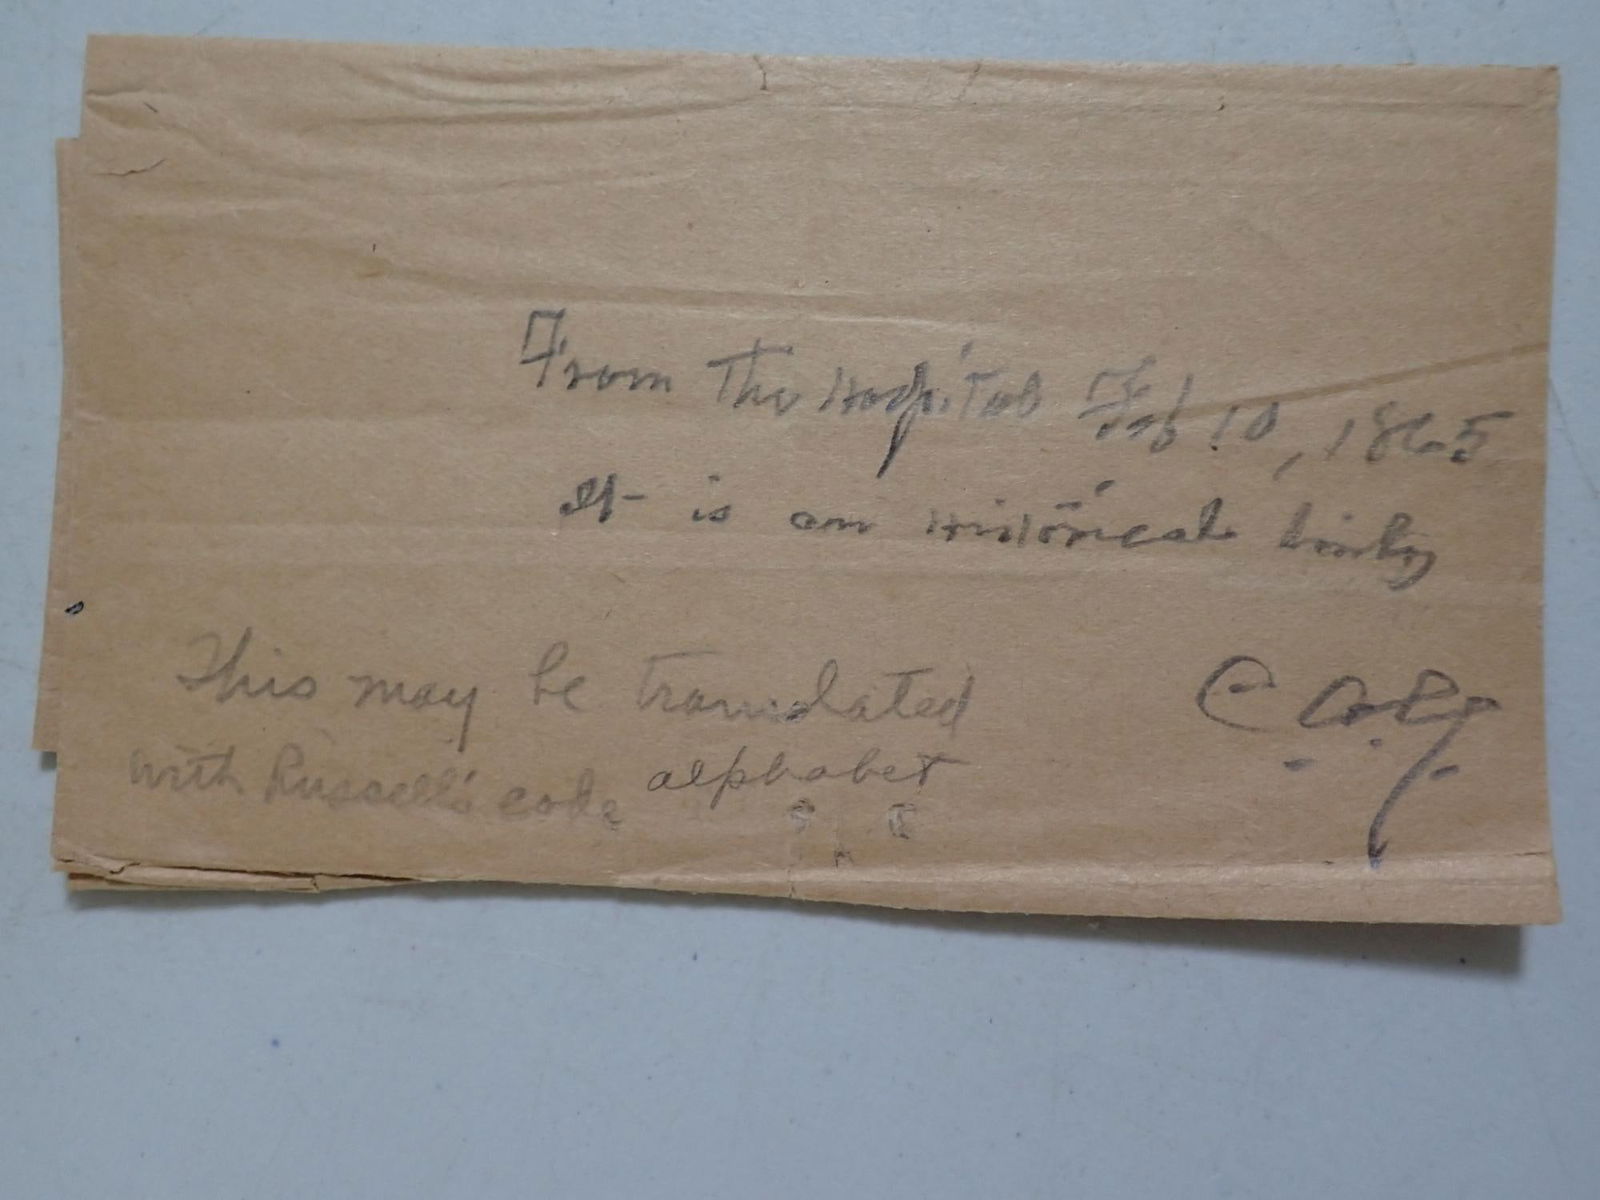 From The Hospital Feb 10, 1865
It is an Historical
This may be translated
with Russell's code alphabet